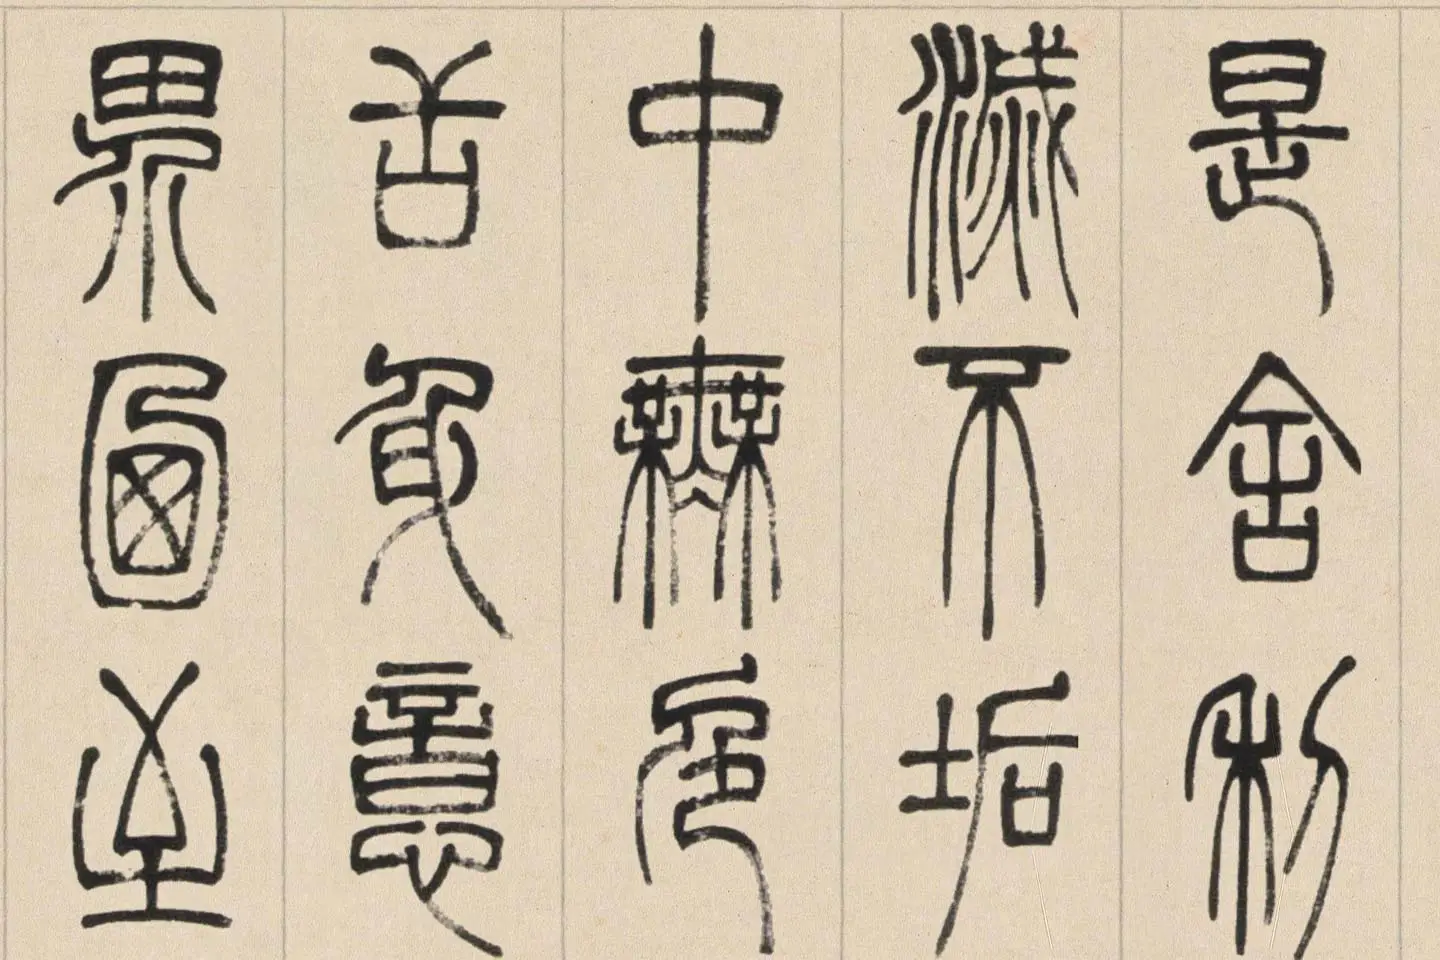 是舍利
滅不垢
中無色
舌身意
界乃至